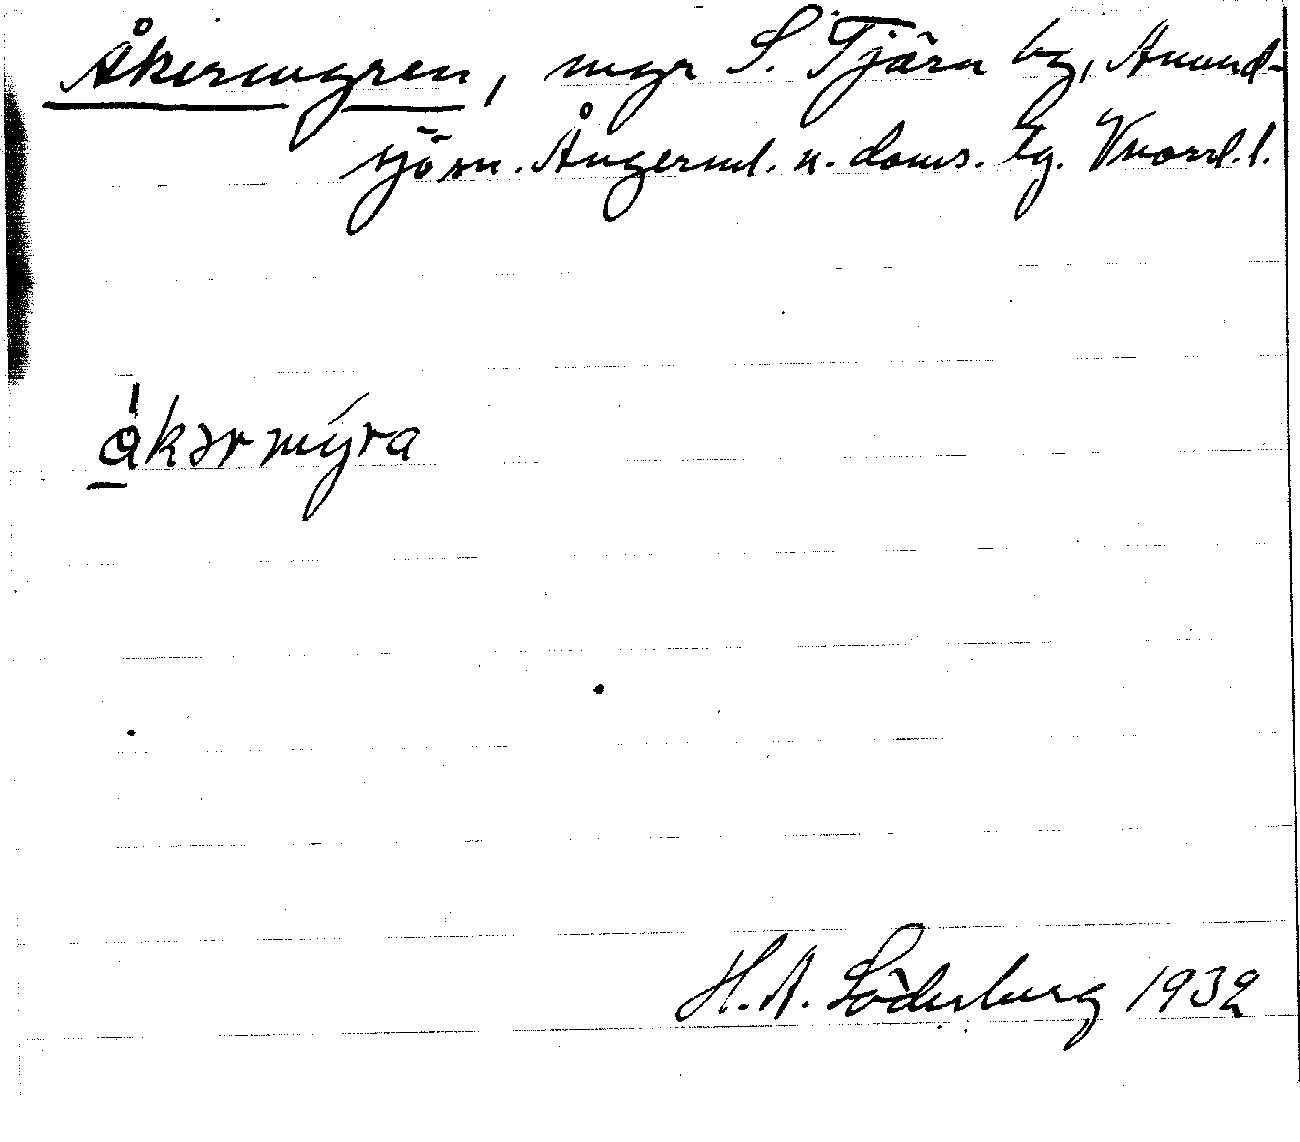 Åkermyren, myr S. Tjärn by, Anund-
sjö sn. Ångerml. n. doms. lg. Vnorrl. l.
åkərmýra
H. A. Söderberg 1932